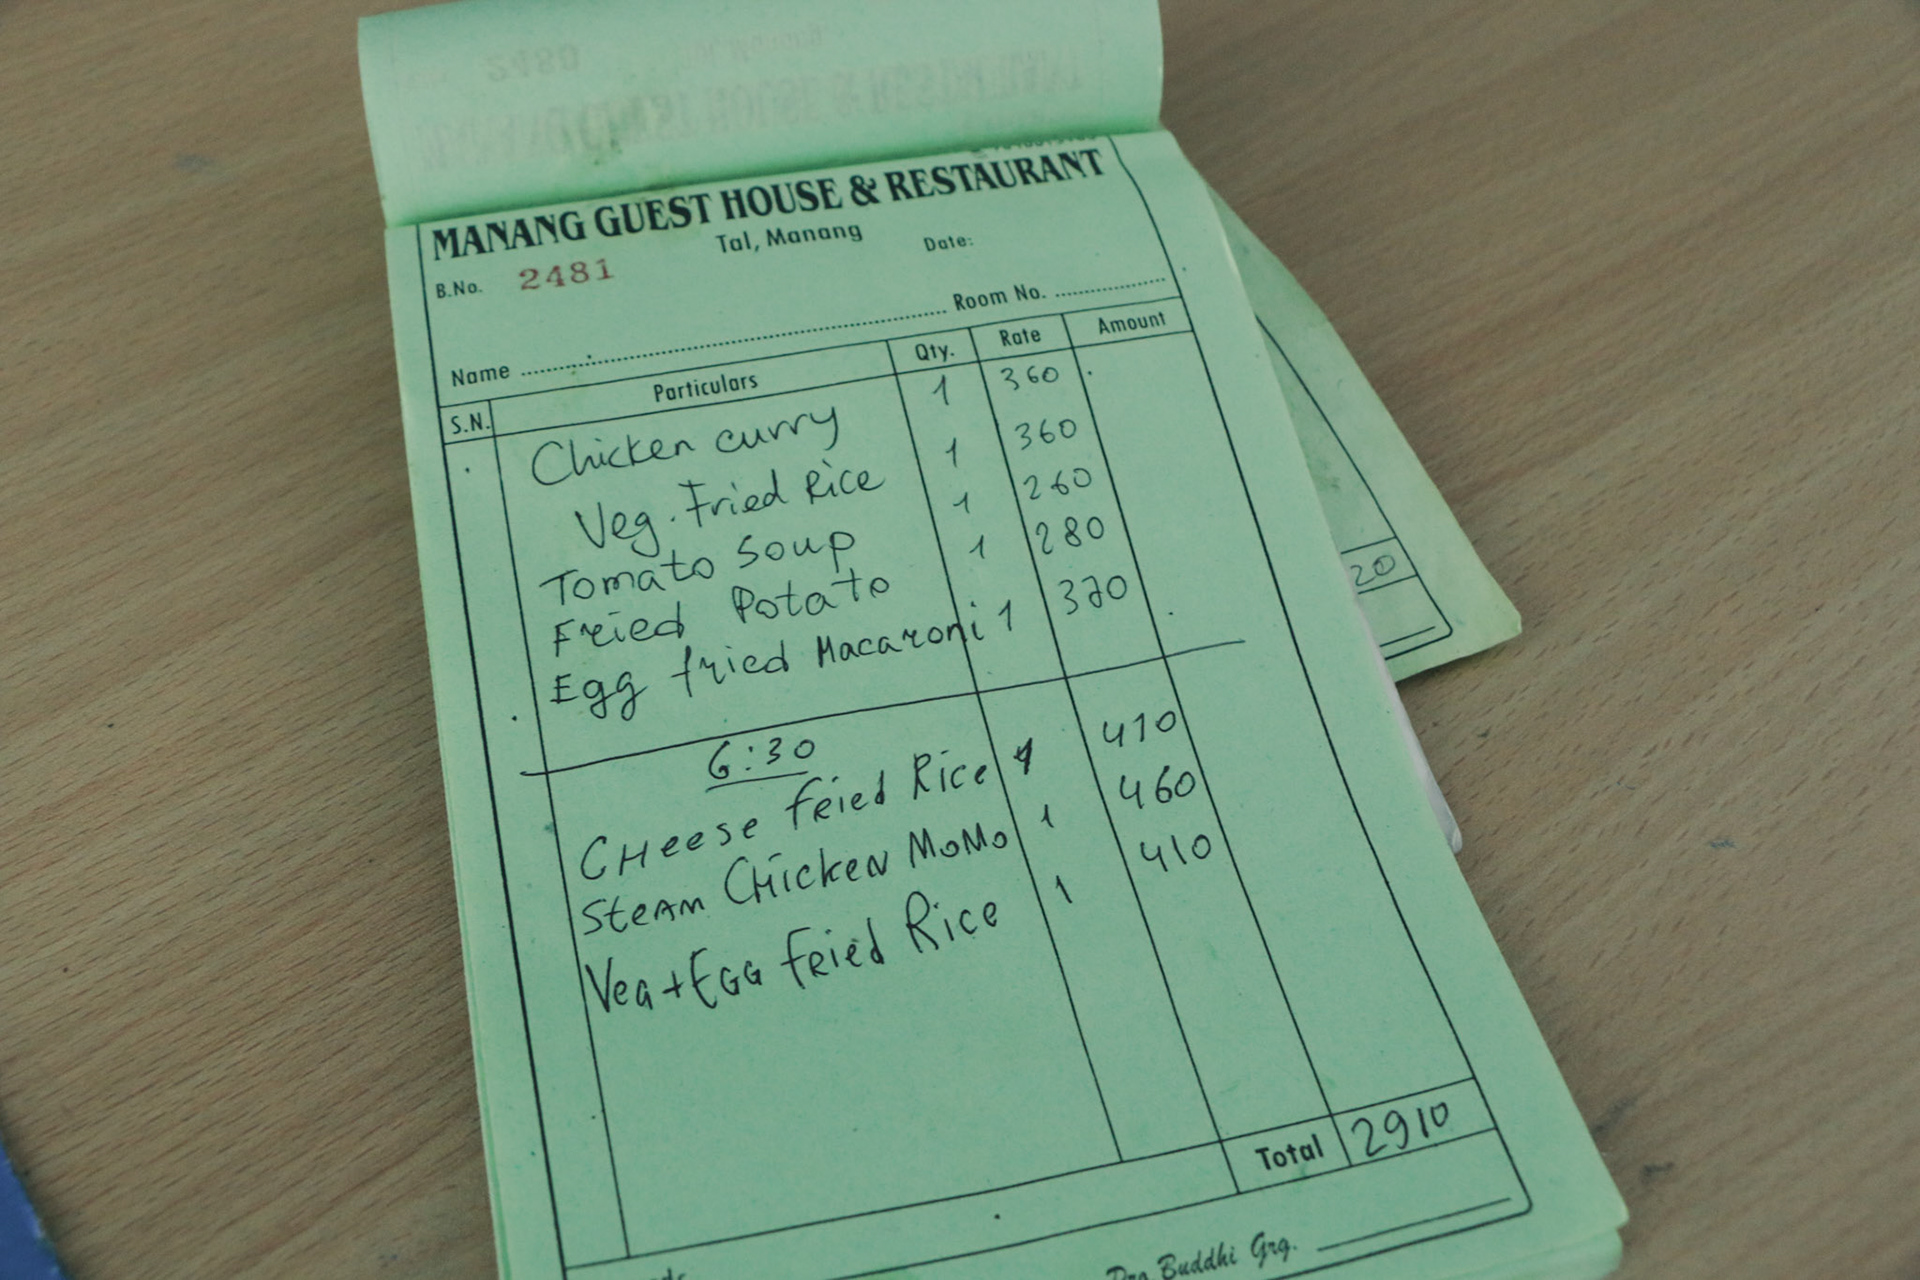 MANANG GUEST HOUSE & RESTAURANT
Tal, Manang
Date:
B.No. 2481
Name Room No.
S.N. Particulars Qty. Rate Amount
Chicken curry 1 360
Veg. Fried Rice 1 360
Tomato Soup 1 260
Fried Potato 1 280
Egg fried Macaroni 1 370
6:30
CHeese fried Rice 1 410
SteAM CHickeN MoMo 1 460
Veg+EGG fried Rice 1 410
Total 2910
Buddhi Grg.
20